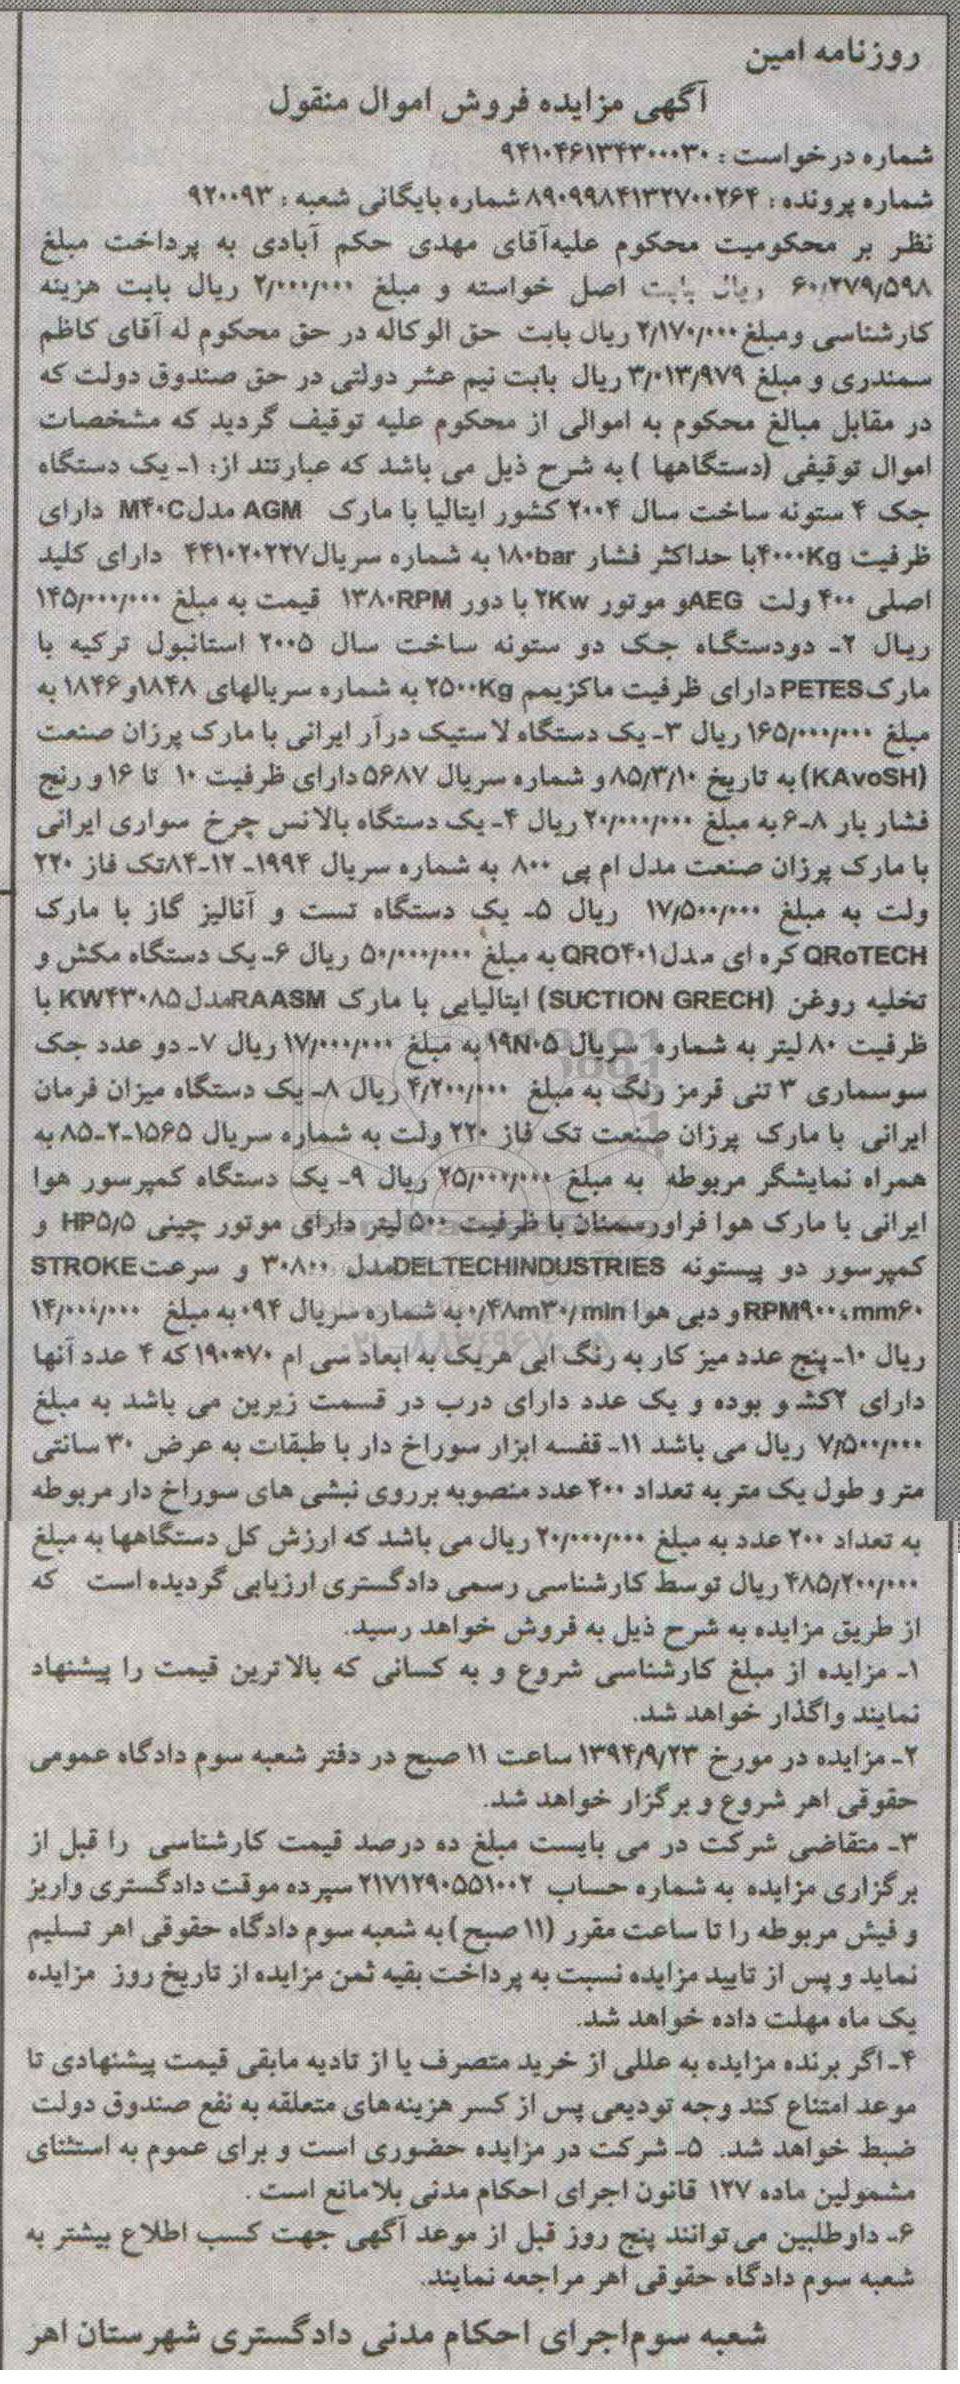 روزنامه امین
آگهی مزایده فروش اموال منقول
شماره درخواست : ۹۴۱۰۴۶۱۳۴۳۰۰۰۳۰
شماره پرونده : ۸۹۰۹۹۸۴۱۳۲۷۰۰۲۶۴ شماره بایگانی شعبه : ۹۲۰۰۹۳
نظر بر محکومیت محکوم علیه‌آقای مهدی حکم آبادی به پرداخت مبلغ
۶۰/۲۷۹/۵۹۸ ریال بابت اصل خواسته و مبلغ ۲/۰۰۰/۰۰۰ ریال بابت هزینه
کارشناسی ومبلغ ۲/۱۷۰/۰۰۰ ریال بابت حق الوکاله در حق محکوم له آقای کاظم
سمندری و مبلغ ۳/۰۱۳/۹۷۹ ریال بابت نیم عشر دولتی در حق صندوق دولت که
در مقابل مبالغ محکوم به اموالی از محکوم علیه توقیف گردید که مشخصات
اموال توقیفی (دستگاهها ) به شرح ذیل می باشد که عبارتند از: ۱- یک دستگاه
جک ۴ ستونه ساخت سال ۲۰۰۴ کشور ایتالیا با مارک AGM مدل M۴۰C دارای
ظرفیت ۴۰۰۰Kg با حداکثر فشار ۱۸۰bar به شماره سریال ۴۴۱۰۲۰۲۲۷ دارای کلید
اصلی ۴۰۰ ولت AEG و موتور ۲Kw با دور ۱۳۸۰RPM قیمت به مبلغ ۱۴۵/۰۰۰/۰۰۰
ریال ۲- دودستگاه جک دو ستونه ساخت سال ۲۰۰۵ استانبول ترکیه با
مارک PETES دارای ظرفیت ماکزیمم ۲۵۰۰Kg به شماره سریالهای ۱۸۴۸و۱۸۴۶ به
مبلغ ۱۶۵/۰۰۰/۰۰۰ ریال ۳- یک دستگاه لاستیک درآر ایرانی با مارک پرزان صنعت
(KAvoSH) به تاریخ ۸۵/۳/۱۰ و شماره سریال ۵۶۸۷ دارای ظرفیت ۱۰ تا ۱۶ و رنج
فشار بار ۸-۶ به مبلغ ۲۰/۰۰۰/۰۰۰ ریال ۴- یک دستگاه بالانس چرخ سواری ایرانی
با مارک پرزان صنعت مدل ام پی ۸۰۰ به شماره سریال ۱۹۹۴- ۱۲-۸۴ تک فاز ۲۲۰
ولت به مبلغ ۱۷/۵۰۰/۰۰۰ ریال ۵- یک دستگاه تست و آنالیز گاز با مارک
QRoTECH کره ای مدل QRO۴۰۱ به مبلغ ۵۰/۰۰۰/۰۰۰ ریال ۶- یک دستگاه مکش و
تخلیه روغن (SUCTION GRECH) ایتالیایی با مارک RAASM مدل KW۴۳۰۸۵ با
ظرفیت ۸۰ لیتر به شماره سریال ۱۹N۰۵ به مبلغ ۱۷/۰۰۰/۰۰۰ ریال ۷- دو عدد جک
سوسماری ۳ تنی قرمز رنگ به مبلغ ۴/۲۰۰/۰۰۰ ریال ۸- یک دستگاه میزان فرمان
ایرانی با مارک پرزان صنعت تک فاز ۲۲۰ ولت به شماره سریال ۱۵۶۵-۲-۸۵ به
همراه نمایشگر مربوطه به مبلغ ۲۵/۰۰۰/۰۰۰ ریال ۹- یک دستگاه کمپرسور هوا
ایرانی با مارک هوا فراورسمنان با ظرفیت ۵۰۰ لیتر دارای موتور چینی HP۵/۵ و
کمپرسور دو پیستونه DELTECHINDUSTRIES مدل ۳۰۸۰۰ و سرعت STROKE
RPM۹۰۰،mm۶۰ و دبی هوا ۰/۴۸m۳۰/min به شماره سریال ۰۹۴ به مبلغ ۱۴/۰۰۰/۰۰۰
ریال ۱۰- پنج عدد میز کار به رنگ ابی هریک به ابعاد سی ام ۷۰*۱۹۰ که ۴ عدد آنها
دارای ۲کشو بوده و یک عدد دارای درب در قسمت زیرین می باشد به مبلغ
۷/۵۰۰/۰۰۰ ریال می باشد ۱۱- قفسه ابزار سوراخ دار با طبقات به عرض ۳۰ سانتی
متر و طول یک متر به تعداد ۴۰۰ عدد منصوبه برروی نبشی های سوراخ دار مربوطه
به تعداد ۲۰۰ عدد به مبلغ ۲۰/۰۰۰/۰۰۰ ریال می باشد که ارزش کل دستگاهها به مبلغ
۴۸۵/۲۰۰/۰۰۰ ریال توسط کارشناسی رسمی دادگستری ارزیابی گردیده است که
از طریق مزایده به شرح ذیل به فروش خواهد رسید.
۱- مزایده از مبلغ کارشناسی شروع و به کسانی که بالاترین قیمت را پیشنهاد
نمایند واگذار خواهد شد.
۲- مزایده در مورخ ۱۳۹۴/۹/۲۳ ساعت ۱۱ صبح در دفتر شعبه سوم دادگاه عمومی
حقوقی اهر شروع و برگزار خواهد شد.
۳- متقاضی شرکت در می بایست مبلغ ده درصد قیمت کارشناسی را قبل از
برگزاری مزایده به شماره حساب ۲۱۷۱۲۹۰۵۵۱۰۰۲ سپرده موقت دادگستری واریز
و فیش مربوطه را تا ساعت مقرر (۱۱ صبح) به شعبه سوم دادگاه حقوقی اهر تسلیم
نماید و پس از تایید مزایده نسبت به پرداخت بقیه ثمن مزایده از تاریخ روز مزایده
یک ماه مهلت داده خواهد شد.
۴- اگر برنده مزایده به عللی از خرید متصرف یا از تادیه مابقی قیمت پیشنهادی تا
موعد امتناع کند وجه تودیعی پس از کسر هزینه‌های متعلقه به نفع صندوق دولت
ضبط خواهد شد. ۵- شرکت در مزایده حضوری است و برای عموم به استثنای
مشمولین ماده ۱۲۷ قانون اجرای احکام مدنی بلامانع است .
۶- داوطلبین می‌توانند پنج روز قبل از موعد آگهی جهت کسب اطلاع بیشتر به
شعبه سوم دادگاه حقوقی اهر مراجعه نمایند.
شعبه سوم‌اجرای احکام مدنی دادگستری شهرستان اهر